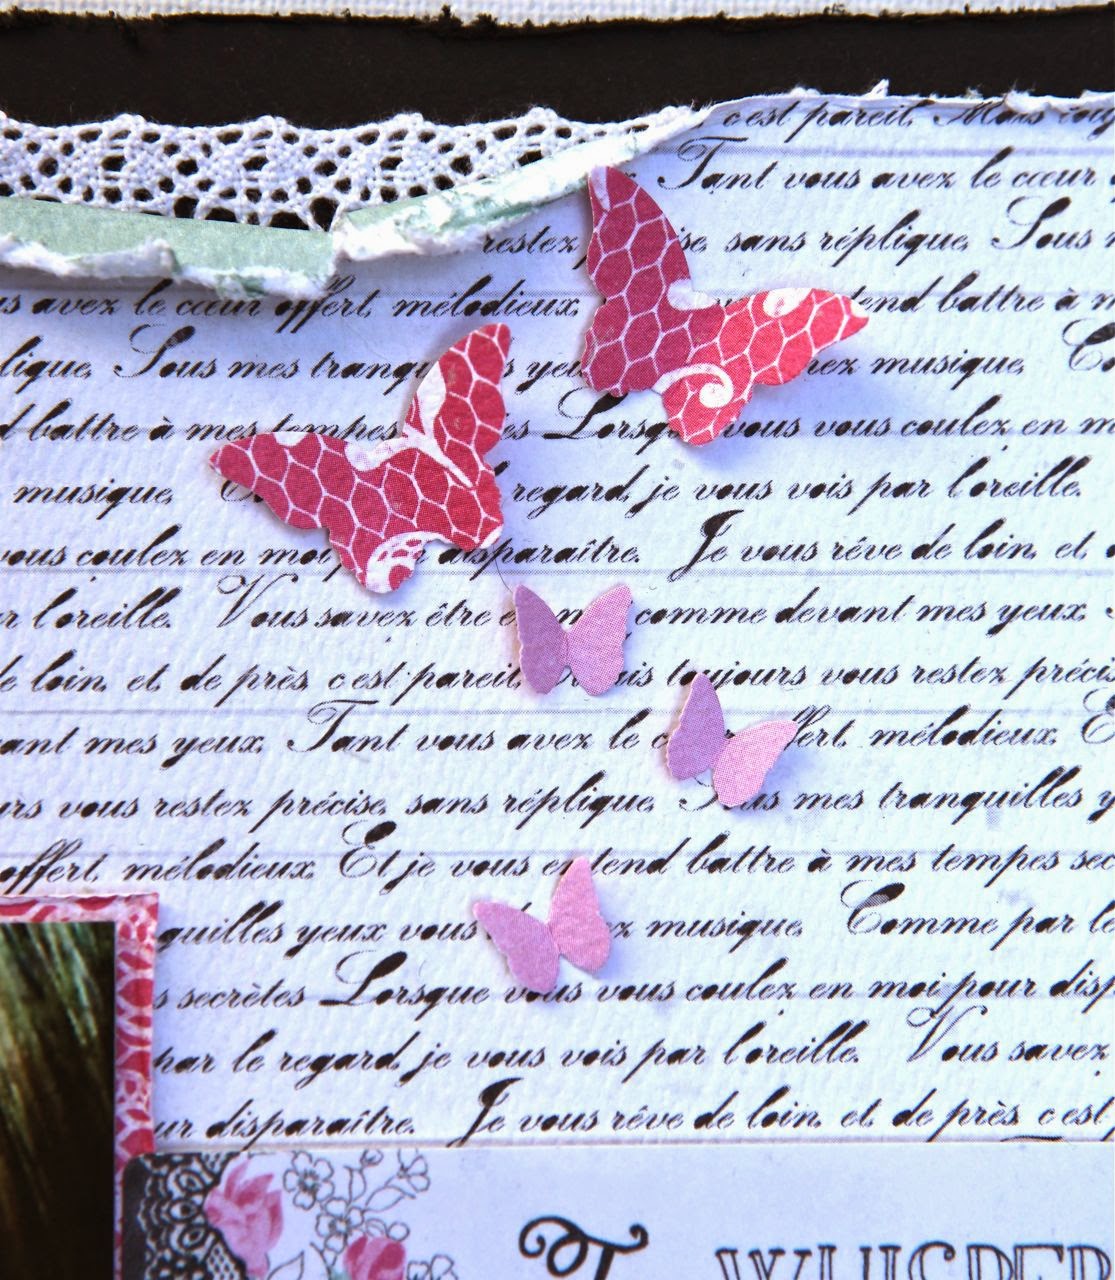 c'est pareil, Mais
Tant vous avez le cœur
restez sans réplique, Sous
avez le cœur offert, mélodieux, tend battre à
Sous mes musique,
battre à mes temps Lorsq vous vous coulez en
musique, regard, je vous vois par l'oreille.
vous coulez en moi disparaître. Je vous rêve de loin, et
l'oreille. Vous savez être comme devant mes yeux.
de loin, et de près, c'est pareil, toujours vous restez
mes yeux, Tant vous avez le mélodieux,
vous restez précise, sans réplique, mes tranquilles
offert, mélodieux, Et je vous tend battre à mes temps
yeux vous musique, Comme par le
secrètes Lorsque vous vous coulez en moi pour
par le regard, je vous vois par l'oreille. Vous savez
disparaître. Je vous rêve de loin, et de près, c'est
WHISPER